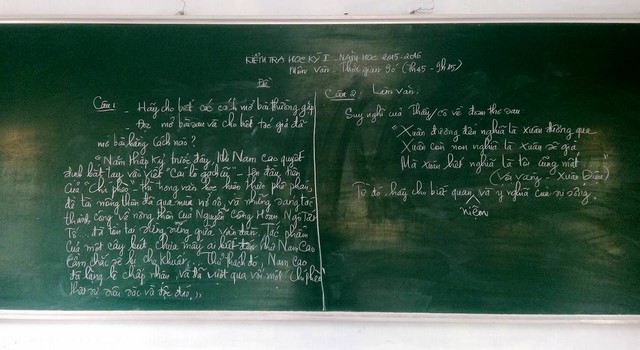 KIỂM TRA HỌC KỲ I - NĂM HỌC 2015-2016
Môn Văn - Thời gian 90' (7h45 - 9h15)
Đề
Câu 1 - Hãy cho biết các cách mở bài thường gặp
Đọc mở bài sau và cho biết, tác giả đã
mở bài bằng cách nào?
"Năm thập kỷ trước đây, khi Nam Cao quyết
định bắt tay vào viết "Cái lò gạch cũ" - tên đầu tiên
của "Chí Phèo" - thì trong văn học hiện thực phê phán,
đề tài nông thôn đã qua mùa nở rộ, và những sáng tác
thành công về nông thôn của Nguyễn Công Hoan, Ngô Tất
Tố... đã tồn tại sừng sững giữa văn đàn. Tác phẩm
của một cây bút chưa mấy ai biết đến như Nam Cao
lắm chắc sẽ bị che khuất. Thử thách đó, Nam Cao
đã lặng lẽ chấp nhận, và đã vượt qua với một Chí Phèo
thật sự sâu sắc và độc đáo."
Câu 2: Làm văn:
Suy nghĩ của Thầy/cô về đoạn thơ sau:
"Xuân đương đến nghĩa là xuân đương qua
Xuân còn non nghĩa là xuân sẽ già
Mà xuân hết nghĩa là tôi cũng mất"
(Vội vàng - Xuân Diệu)
Từ đó, hãy cho biết quan niệm và ý nghĩa của sự sống.